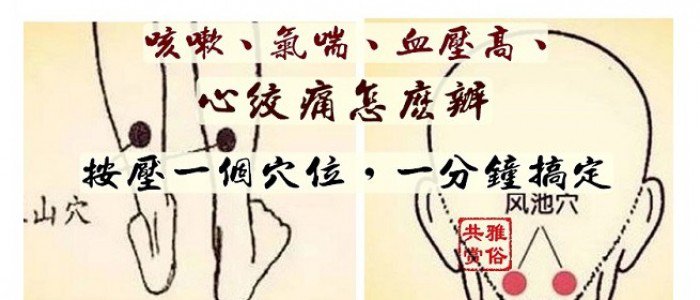 咳嗽、氣喘、血壓高、
心絞痛怎麽辦
按壓一個穴位，一分鐘搞定
山穴
风池穴
雅俗
共赏